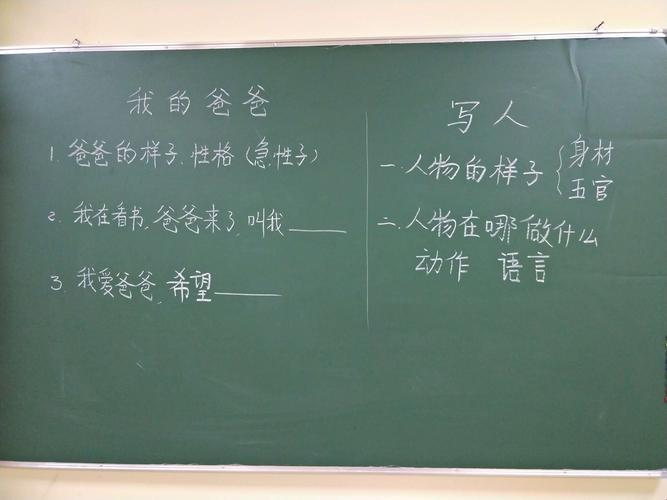 我的爸爸
1. 爸爸的样子.性格(急性子)
2. 我在看书,爸爸来了,叫我______
3. 我爱爸爸,希望______
写人
一.人物的样子{身材
五官
二.人物在哪做什么
动作 语言